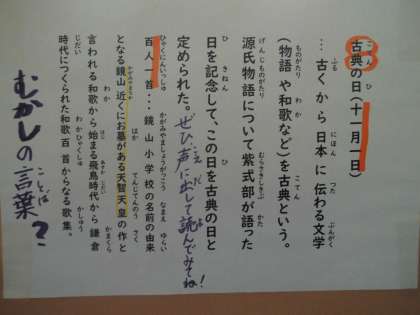 古典の日(十一月一日)
…古くから日本に伝わる文学
(物語や和歌など)を古典という。
源氏物語について紫式部が語った
日を記念して、この日を古典の日と
定められた。ぜひ、声に出して読んでみてね!
百人一首…鏡山小学校の名前の由来
となる鏡山近くにお墓がある天智天皇の作と
言われる和歌から始まる飛鳥時代から鎌倉
時代につくられた和歌百首からなる歌集。
むかしの言葉?